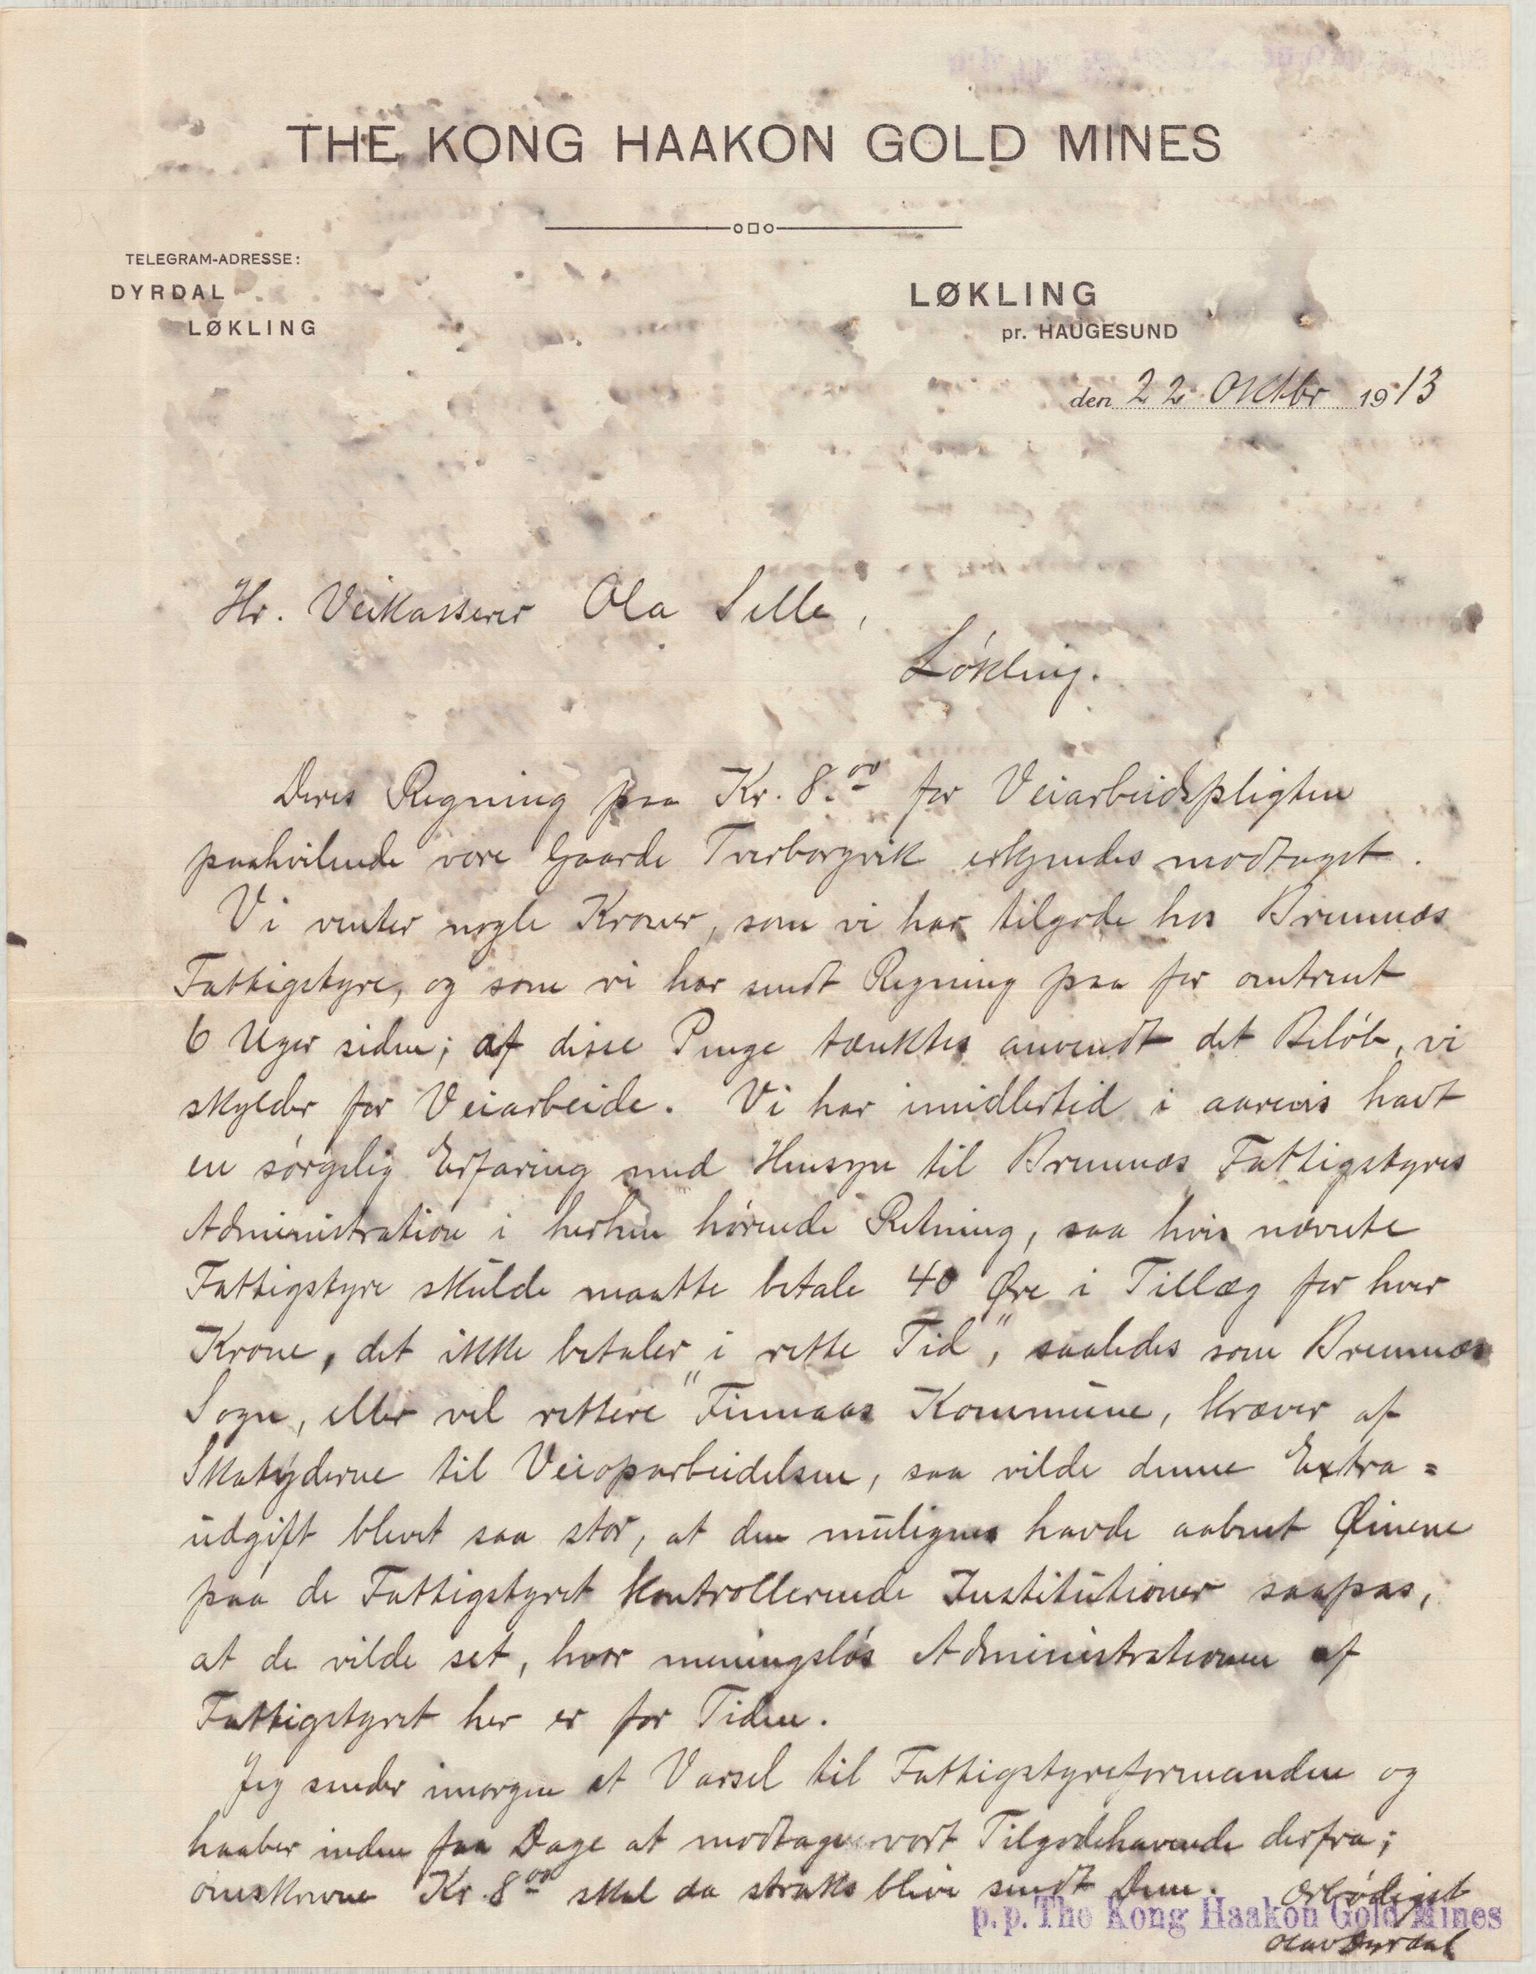 THE KONG HAAKON GOLD MINES
TELEGRAM-ADRESSE:
DYRDAL
LØKLING
LØKLING
pr. HAUGESUND
den 22 Oktbr 1913
Hr. Veikasserer Ola Selle,
Løkling.
Deres Regning paa Kr. 8.00 for Veiarbeidspligten
paahvilende vore Gaarde Tverborgvik erkjendes modtaget.
Vi venter nogle Kroner, som vi har tilgode hos Bremnæs
Fattigstyre, og som vi har sendt Regning paa for omtrent
6 Uger siden; af disse Penge tænktes anvendt det Beløb, vi
skylder for Veiarbeide. Vi har imidlertid i aarevis havt
en sørgelig Erfaring med Hensyn til Bremnæs Fattigstyres
Administration i herhen hørende Retning, saa hvis nævnte
Fattigstyre skulde maatte betale 40 Øre i Tillæg for hver
Krone, det ikke betaler "i rette Tid", saaledes som Bremnæs
Sogn, eller vel rettere "Finnaas Kommune, kræver af
Skatyderne til Veioparbeidelsen, saa vilde denne Extra=
udgift blevet saa stor, at den muligens havde aabnet Øinene
paa de Fattigstyret kontrollerende Institutioner saapas,
at de vilde set, hvor meningsløs Administrationen af
Fattigstyret her er for Tiden.
Jeg sender imorgen et Varsel til Fattigstyreformanden og
haaber inden faa Dage at modtage vort Tilgodehavende derfra;
omskrevne Kr. 8.00 skal da straks blive sendt Dem. Ærbødigst
p. p. The Kong Haakon Gold Mines
Olav Dyrdal